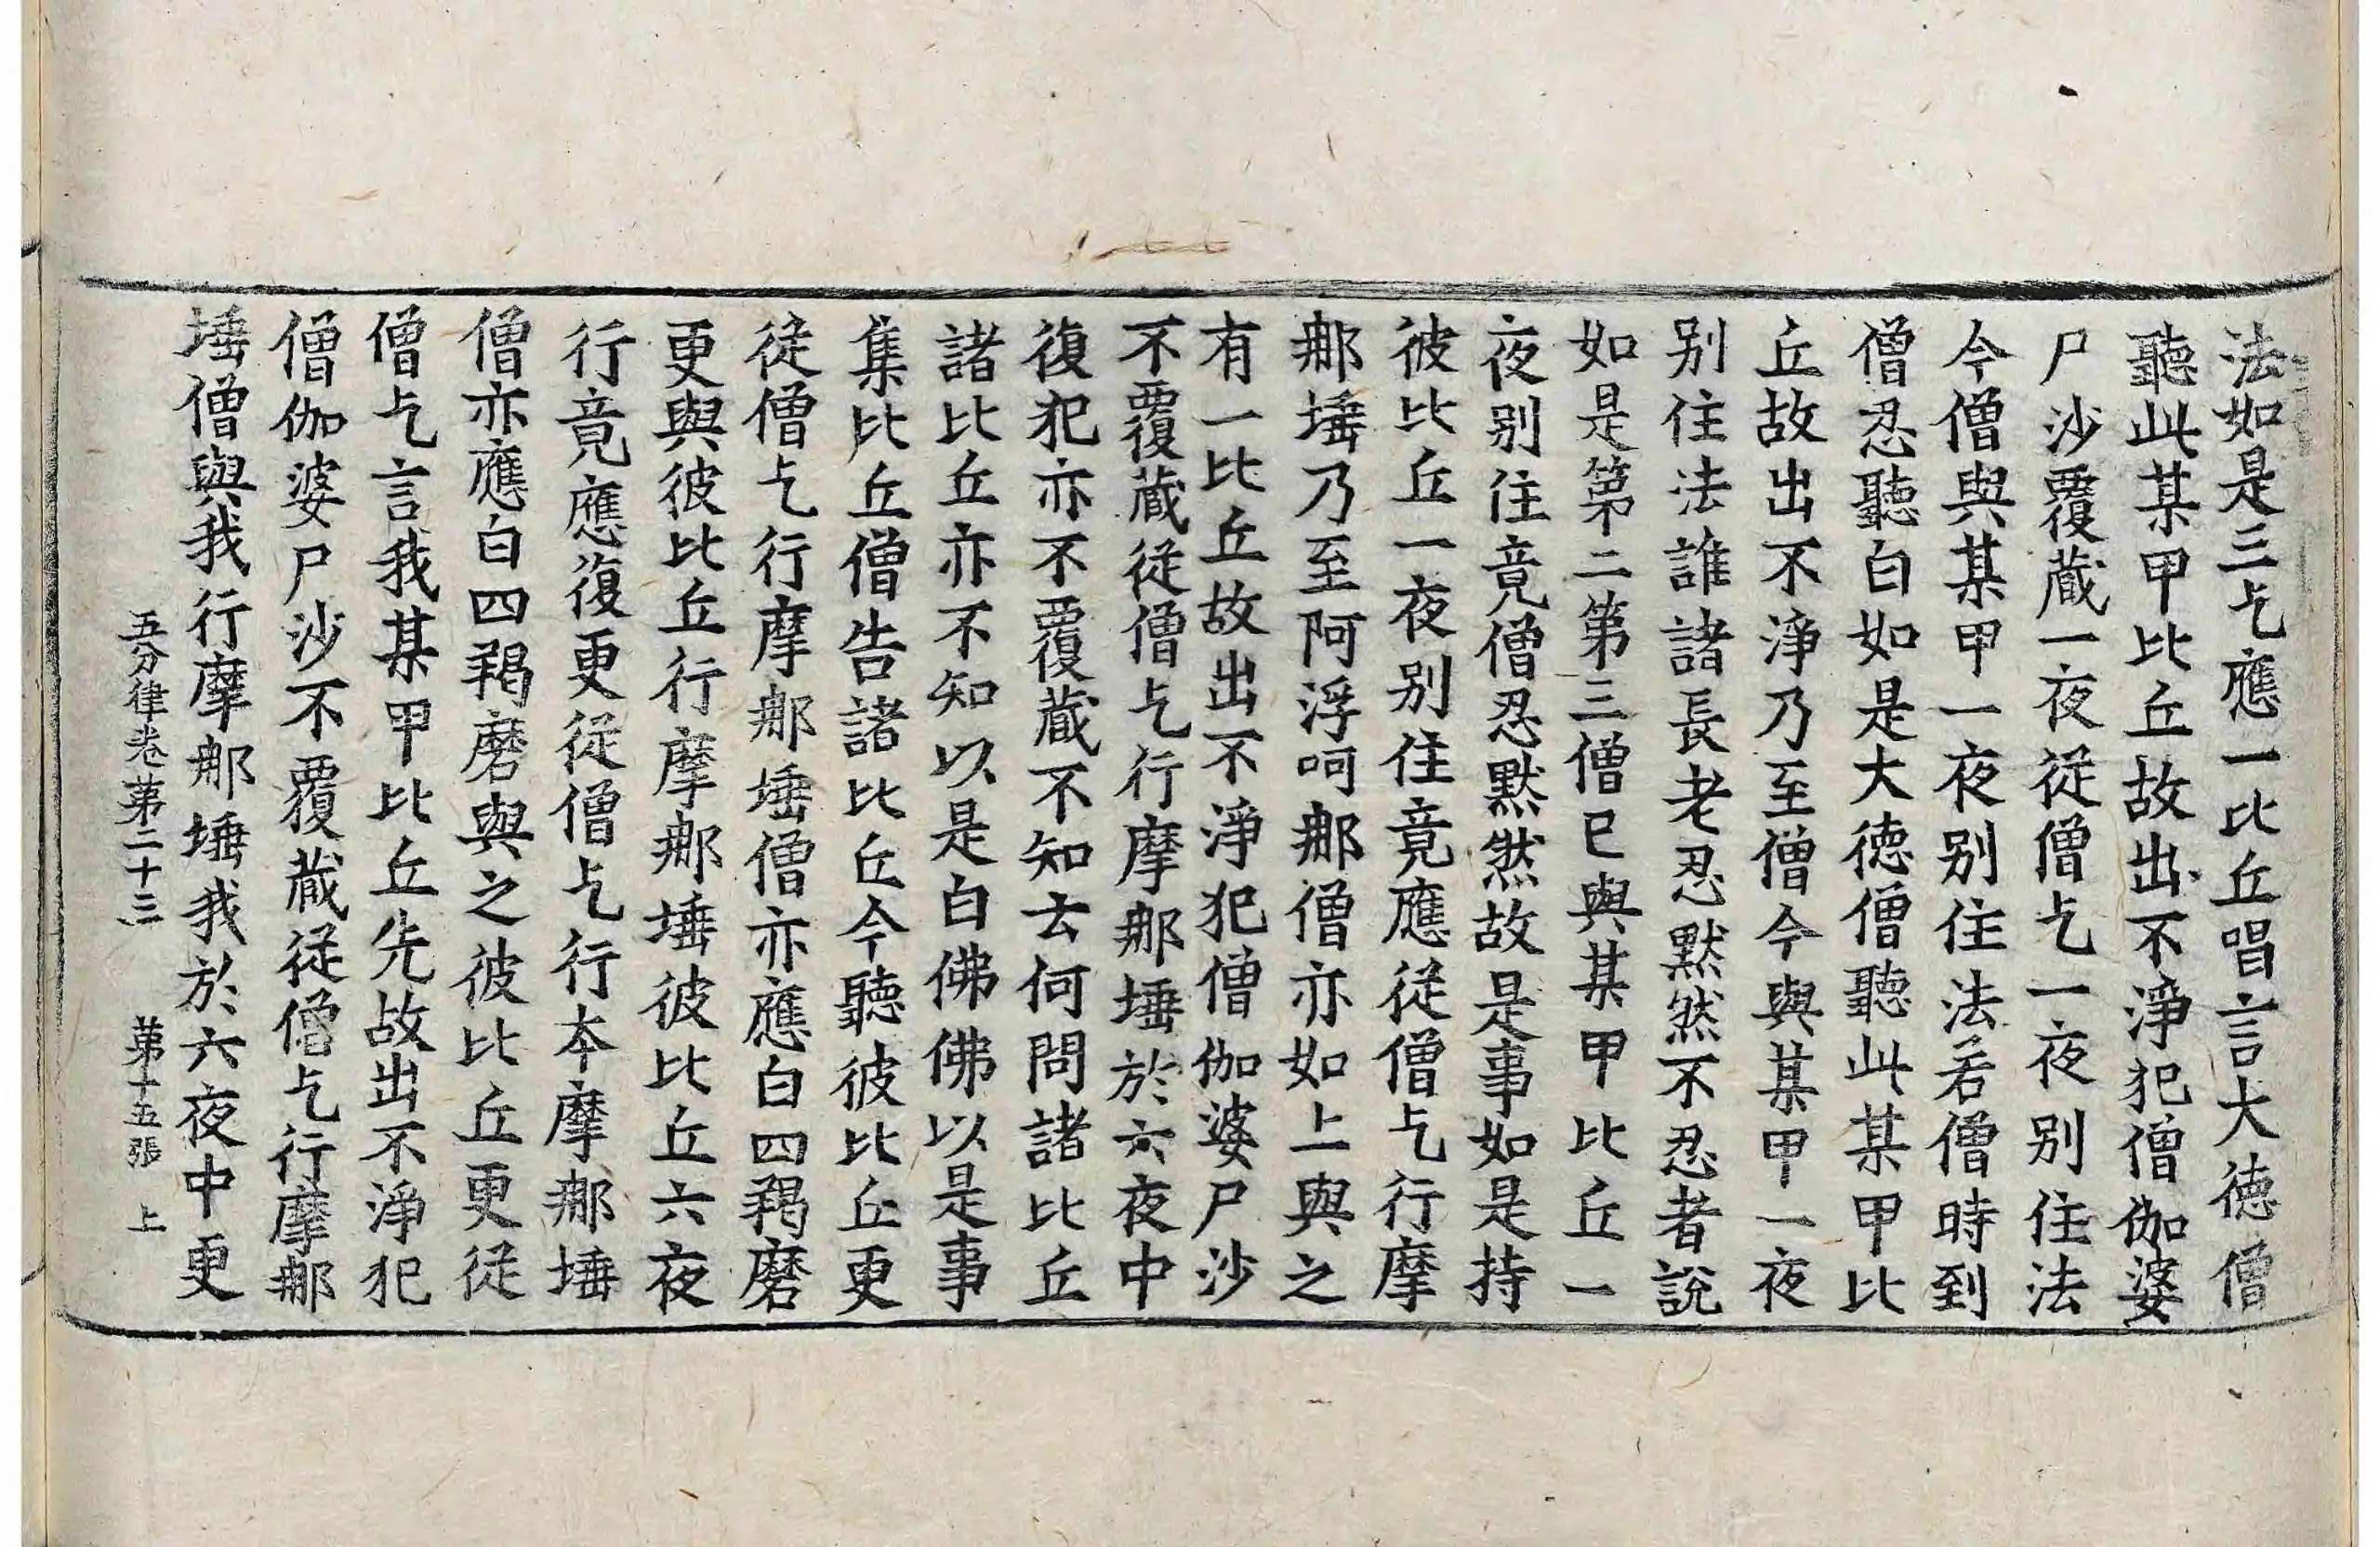 法如是三乞應一比丘唱言大徳僧
聽此某甲比丘故出不淨犯僧伽婆
尸沙覆蔵一夜從僧乞一夜别住法
今僧與某甲一夜别住法若僧時到
僧忍聽白如是大徳僧聽此某甲比
丘故出不淨乃至僧今與某甲一夜
别住法誰諸長老忍默然不忍者說
如是第二第三僧已與某甲比丘一
夜别住竟僧忍默然故是事如是持
彼比丘一夜别住竟應從僧乞行摩
那埵乃至阿浮呵那僧亦如上與之
有一比丘故出不淨犯僧伽婆尸沙
不覆蔵從僧乞行摩那埵於六夜中
復犯亦不覆蔵不知去何問諸比丘
諸比丘亦不知以是白佛佛以是事
集比丘僧告諸比丘今聽彼比丘更
從僧乞行摩那埵僧亦應白四羯磨
更與彼比丘行摩那埵彼比丘六夜
行竟應復更從僧乞行夲摩那埵
僧亦應白四羯磨與之彼比丘更從
僧乞言我某甲比丘先故出不淨犯
僧伽婆尸沙不覆蔵從僧乞行摩那
埵僧與我行摩那埵我於六夜中更
五分律卷第二十三　第十五張　上